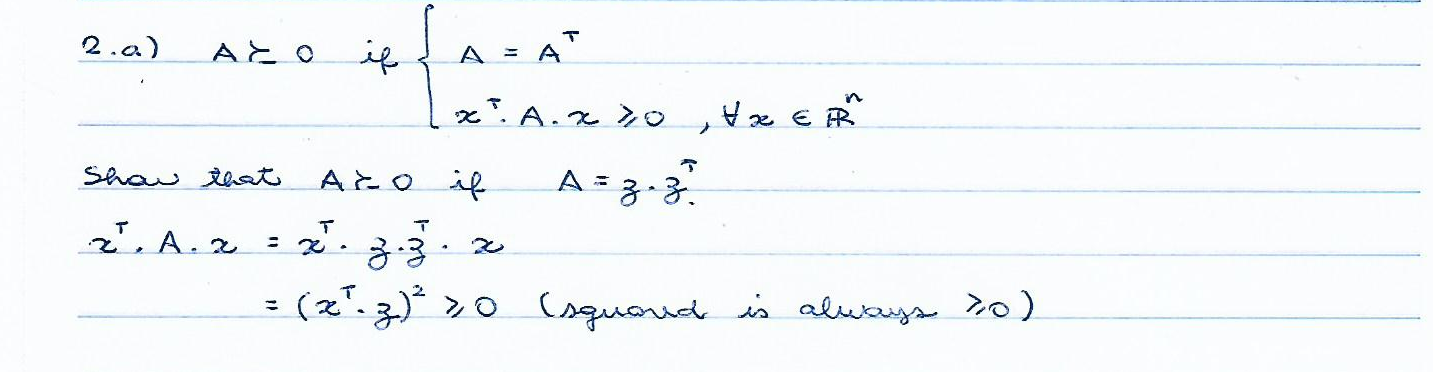 2.a) A ⪰ 0 if { A = Aᵀ
xᵀ. A. x ⩾ 0 , ∀x ∈ ℝⁿ
Show that A ⪰ 0 if A = z. zᵀ.
xᵀ. A. x = xᵀ. z. zᵀ. x
= (xᵀ. z)² ⩾ 0 (squared is always ⩾0)